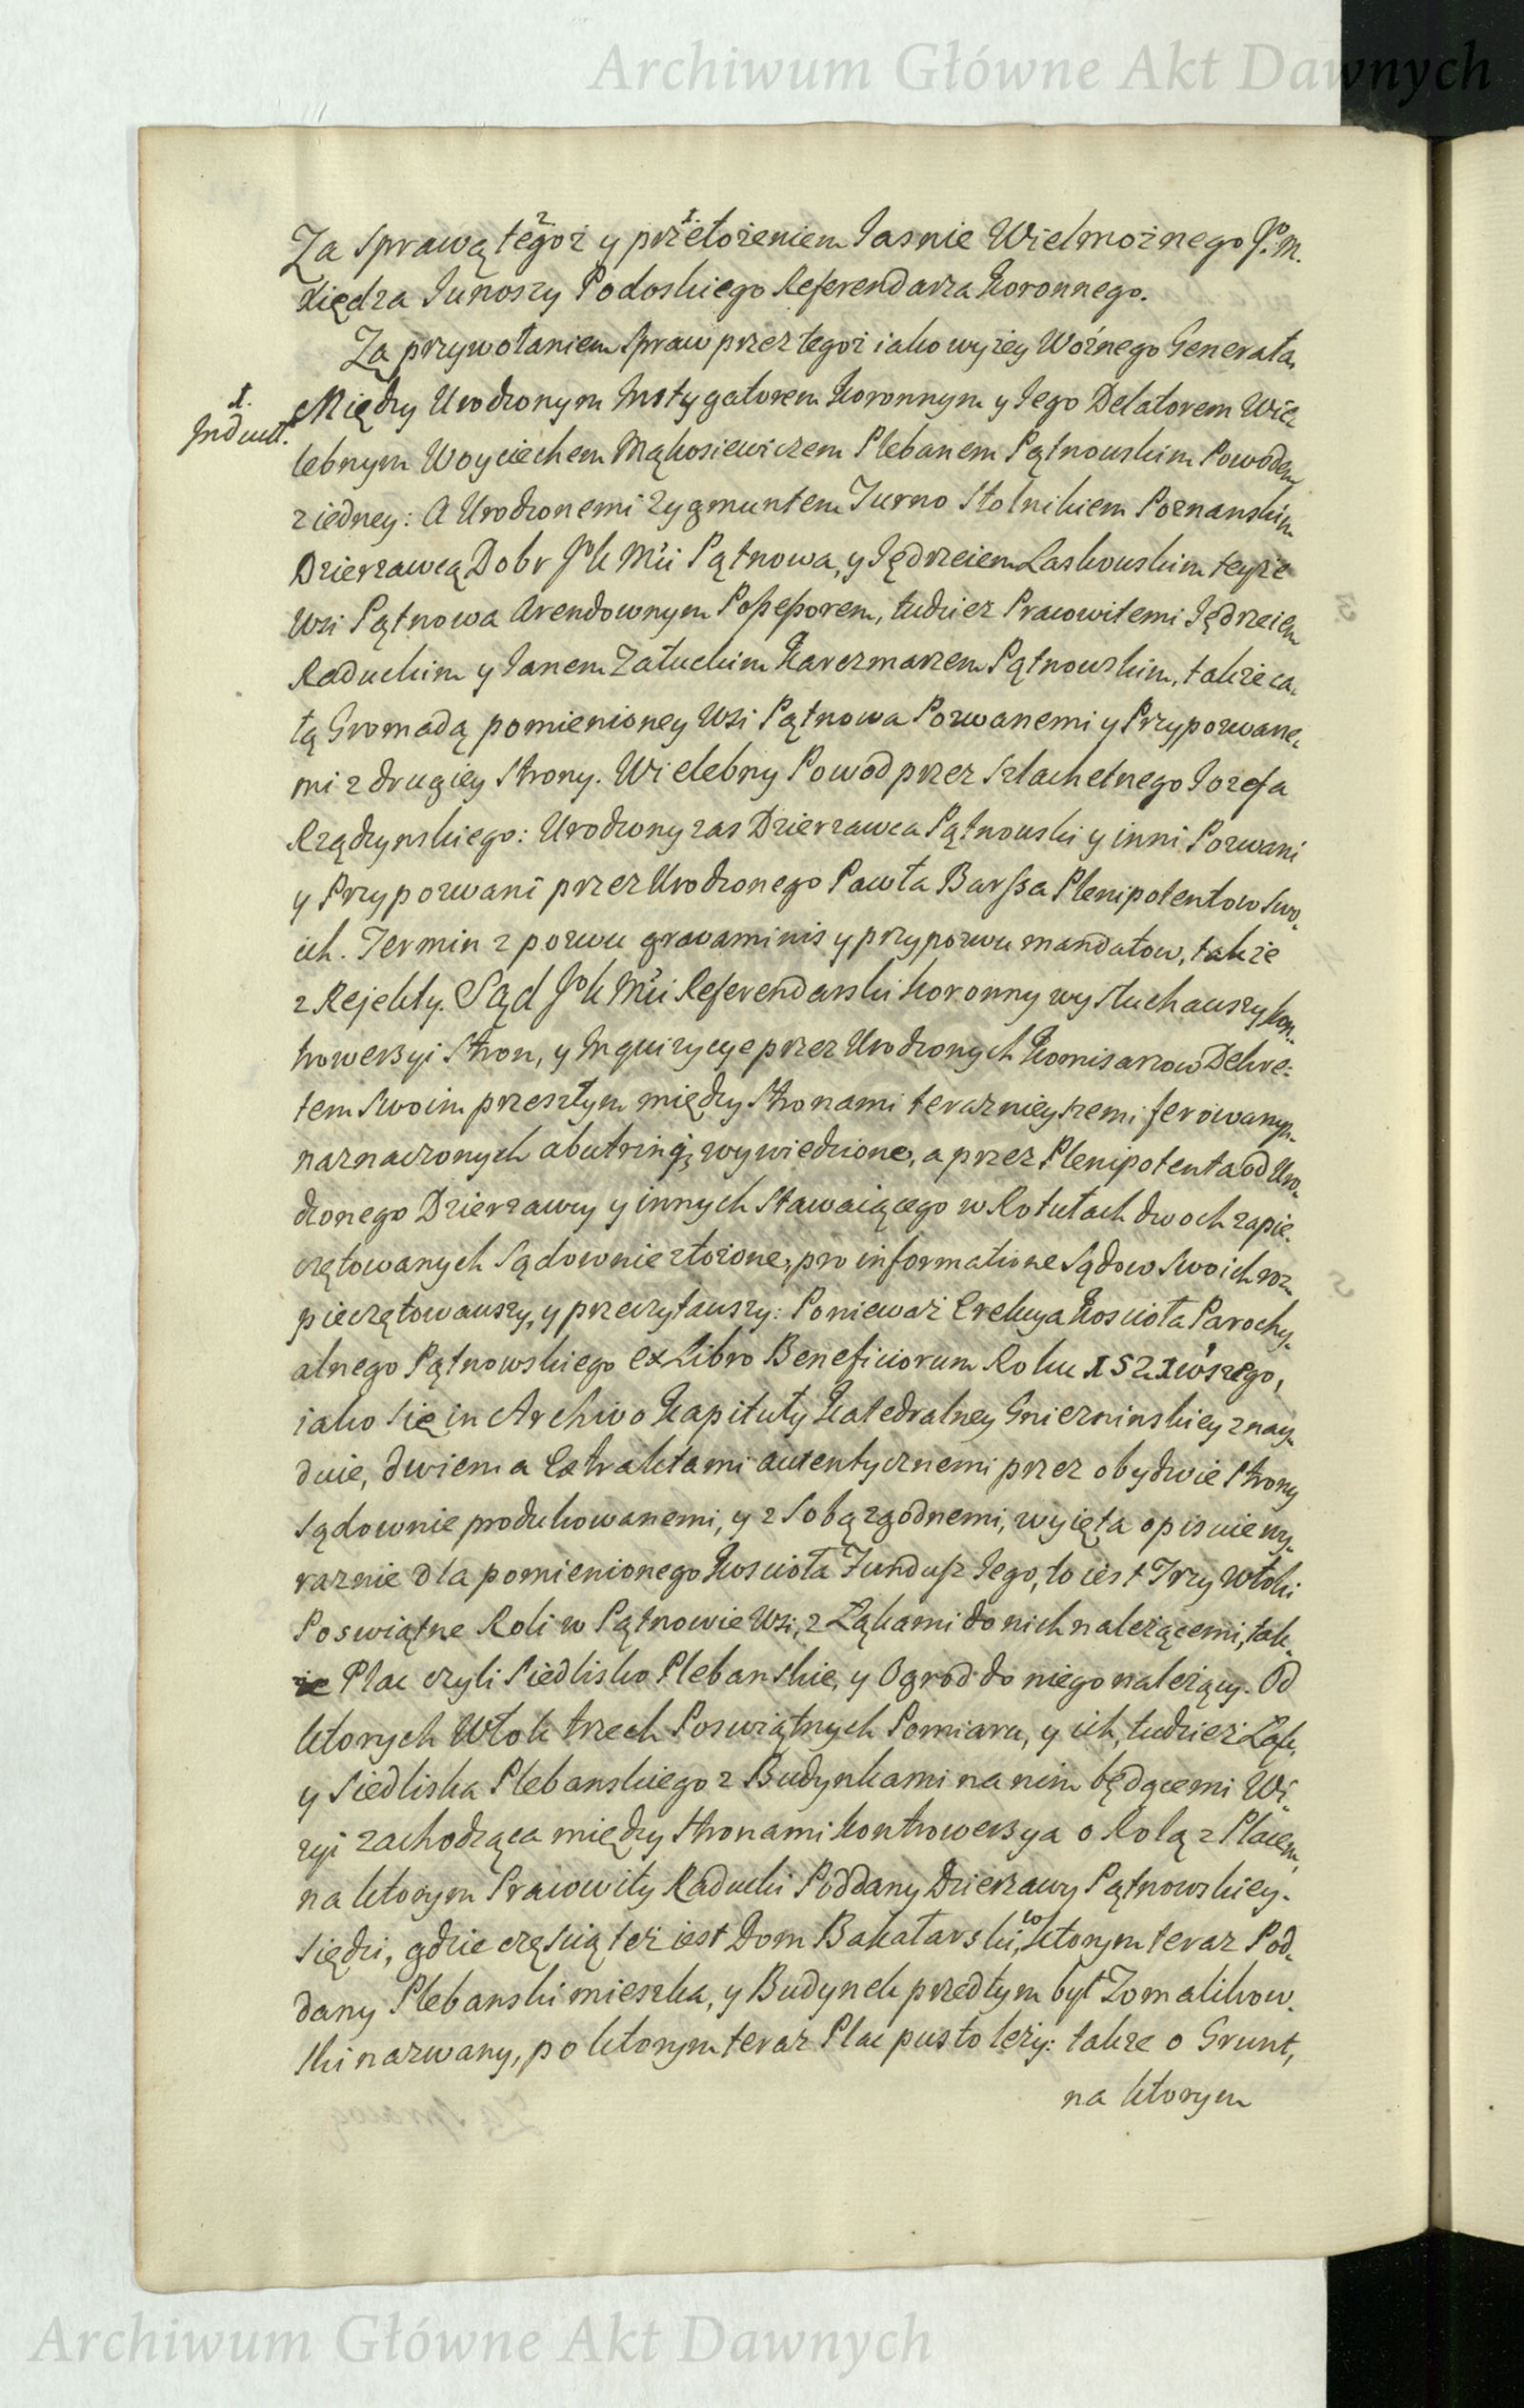 Archiwum Główne Akt Dawnych
Za Sprawą tegoż y przełożeniem Jasnie Wielmożnego Jo. M.
Xiędza Junoszy Podoskiego Referendarza Koronnego.
Za przywołaniem Spraw przez tegoż iako wyżey Woźnego Generała,
1.
Indukt.
Między Urodzonym Instygatorem Koronnym y Jego Delatorem Wie-
lebnym Woyciechem Mąkosiewiczem Plebanem Pątnowskim Powodem
z iedney: A Urodzonemi Zygmuntem Turno Stolnikiem Poznanskim
Dzierzawcą Dobr JoK Mci Pątnowa, y Jędrzeiem Laskowskim teyże
Wsi Pątnowa Arendownym Possessorem, tudziez Pracowitemi Jędrzeiem
Raduckim y Janem Załuckim Karczmarzem Pątnowskim, także ca-
łą Gromadą pomienioney Wsi Pątnowa Pozwanemi y Przypozwane-
mi z drugiey Strony. Wielebny Powod przez Szlachetnego Jozefa
Rządzynskiego: Urodzony zas Dzierzawca Pątnowski y inni Pozwani
y Przypozwani przez Urodzonego Pawła Barssa Plenipotentow Swo-
ich. Termin z pozwu gravaminis y przypozwu mandatow, także
z Rejekty. Sąd JoK Mci Referendarski Koronny wysłuchawszy kon-
trowersyi Stron, y Inquizycye przez Urodzonych Komisarzow Dekre-
tem Swoim przeszłym między Stronami teraznieyszemi ferowanym
naznaczonych abutrinq; wywiedzione, a przez Plenipotenta od Uro-
dzonego Dzierzawcy y innych Stawaiącego w Rotułach dwoch zapie-
czętowanych Sądownie złożone, pro informatione Sądow Swoich roz-
pieczętowawszy, y przeczytawszy: Ponieważ Erekcya Kosciola Parochy-
alnego Pątnowskiego ex Libro Beneficiorum Roku 1521wszego,
iako Się in Archivo Kapituły Katedralney Gnieznińskiey znay-
duie, dwiema Extraktami autentycznemi przez obydwie Strony
Sądownie produkowanemi, y z Sobą zgodnemi, wyięta opisuie wy-
raznie dla pomienionego Kosciola Fundusz Jego, to iest Trzy Włoki
Poswiątne Roli w Pątnowie Wsi, z Łąkami do nich należącemi, tak-
że Plac czyli Siedlisko Plebanskie, y Ogrod do niego należący. Od
ktorych Włok trzech Poswiątnych Pomiaru, y ich, tudzież Łąk,
y Siedliska Plebanskiego z Budynkami na nim będącemi Wi-
zyi zachodząca między Stronami kontrowersya o Rolą z Placem,
na ktorym Pracowity Raducki Poddany Dzierzawy Pątnowskiey
Siędzi, gdzie częścią też iest Dom Bakałarski, w ktorym teraz Pod-
dany Plebanski mieszka, y Budynek przedtym był Zomalikow-
ski nazwany, po ktorym teraz Plac pusto leży: także o Grunt,
na ktorym
Archiwum Główne Akt Dawnych